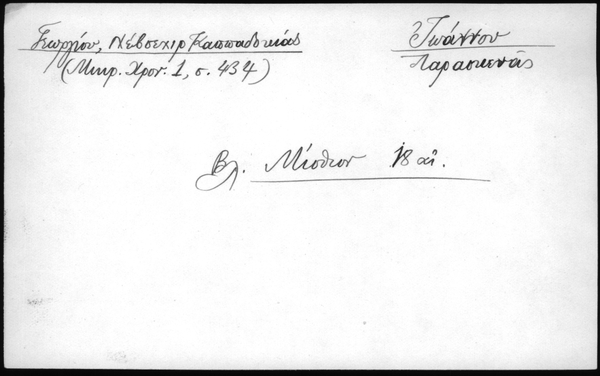 Γεωργίου, Νέβσεχιρ Καππαδοκίας
(Μικρ. Χρον. 1, σ. 434)
Ἰωάννου
Παρασκευᾶς
βλ. Μίσθιον 18 αἰ.